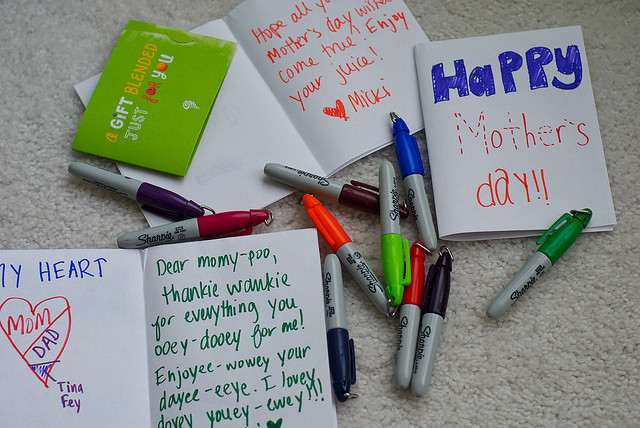 Hope all yo
Mother's day wishes
come true! Enjoy
your juice!
Micki
A GIFT BLENDED
JUST FOR YOU
HaPPY
Mother's
day!!
Sharpie
Sharpie
Sharpie
Sharpie
Sharpie
Sharpie
Sharpie
Sharpie
Sharpie
MY HEART
MOM
DAD
Tina
Fey
Dear momy-poo,
thankie wankie
for everything you
ooey-dooey for me!
Enjoyee-wowey your
dayee-eeye. I lovey
dovey youey-ewey!!!